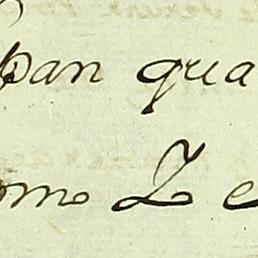 pan qua
omo Z e